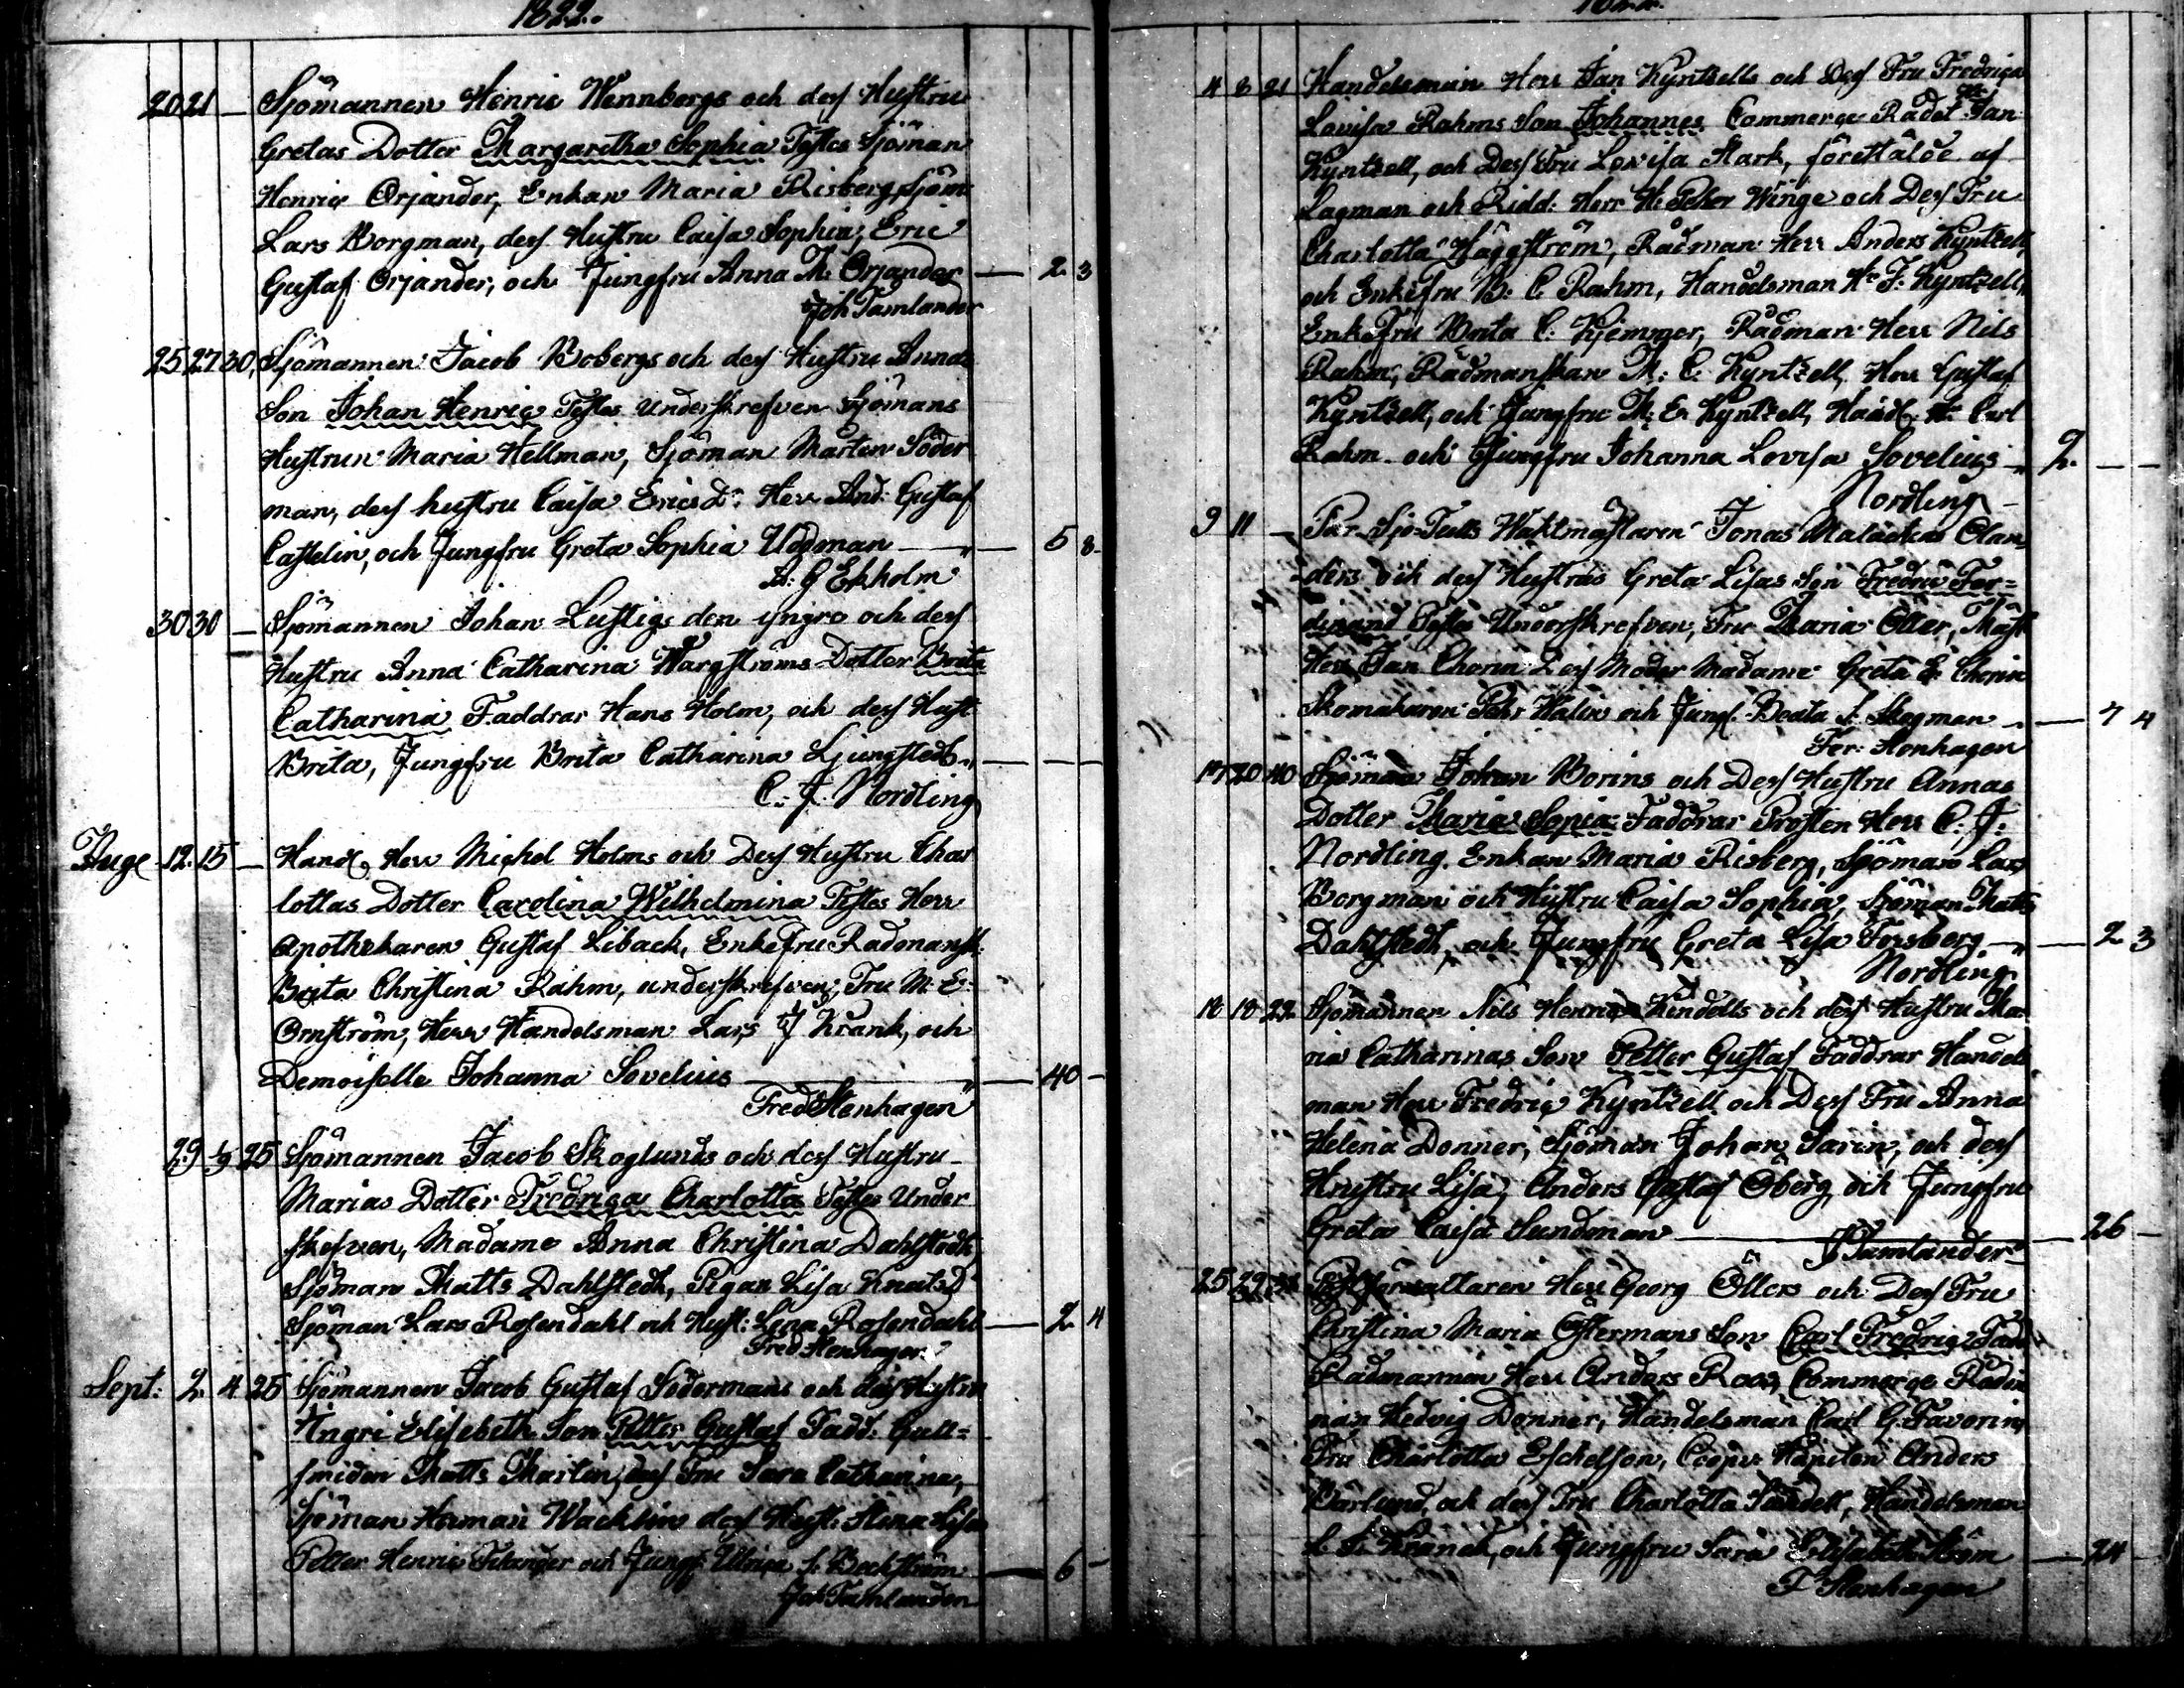 1822.
20 21 — Sjömannen Henric Wennbergs och des Hustru
Gretas Dotter Margaretha Sophia Testes Sjöman
Henric Orjander, Enkan Maria Risberg, Sjöm:
Lars Borgman, des Hustru Caisa Sophia, Eric
Gustaf Orjander, och Jungfru Anna M: Orjander — 2 3
Joh Tamlander
25 27 30, Sjömannen Jacob Bobergs och des Hustru Annas
Son Johan Henric Testes Underskrefven Sjömans
Hustrun Maria Hellman, Sjöman Mårten Söder
man, des hustru Caisa Ericsdr Herr And: Gustaf
Castelin, och Jungfru Greta Sophia Udgman — 5 8
A: G Ekholm
30 30 — Sjömannen Johan Lustigs den yngre och des
Hustru Anna Catharina Wargströms Dotter Brita
Catharina Faddrar Hans Holm, och des Hust
Brita, Jungfru Brita Catharina Ljungstedt — — —
C: J: Nordling
Aug 12 15 — Handl Herr Michel Holms och Des Hustru Char
lottas Dotter Carolina Wilhelmina Testes Herr
Apothekaren Gustaf Liback, Enkefru Radmansk:
Brita Christina Rahm, underskrefven, Fru M: E:
Ornström, Herr Handelsman Lars J Krank, och
Demoiselle Johanna Sovelius — 40 —
Fred Stenhagen
29 1/9 25 Sjömannen Jacob Skoglunds och des Hustru
Marias Dotter Fredrica Charlotta Testes Under
skefven, Madame Anna Christina Dahlstedt,
Sjöman Matts Dahlstedt, Pigan Lisa Knutsd
Sjöman Lars Rosendahl och Hust: Lena Rosendahl — 2 4
Fred Stenhagen
Sept: 2 4 25 Sjömannen Jacob Gustaf Södermans och des Hustru
Ingri Elisebeth Son Petter Gustaf Fadd: Gull=
smeden Matts Martin, des Fru Sara Catharina,
Sjöman Herman Wacklin des Hust: Stina Lisa
Petter Henric och Jungf: Ulrica S: Beckström — 6 —
Joh Tamlander
4 8 21 Handelsman Herr Jan Kyntzells och Des Fru Fredrica
Lovisa Rahms Son Johannes Commerce Rådet Jan
Kyntzell, och Des Fru Lovisa Stark, föreställde af
Lagman och Ridd: Herr H: Peter Winge och Des Fru
Charlotta Häggström, Rådman Herr Anders Kyntzell,
och Enkefru B: C. Rahm, Handelsman Hr F: Kyntzell,
Enk Fru Brita C: Kjemmer, Rådman Herr Nils
Rahm, Rådmanskan M: C: Kyntzell, Herr Gustaf
Kyntzell, och Jungfru M: E. Kyntzell, Handl: Hr Carl
Rahm och Jungfru Johanna Lovisa Sovelius — 2 — —
Nordling
9 11 — Sjö-Tulls Waktmästaren Jonas Malackias Olan
ders och des Hustrus Greta Lisas Son Fredric Fer=
dinand Testes Underskrefven, Fru Maria Öller, Mäst
Herr Jan Chorin Des Moder Madame Greta E: Chorin
Skomakaren Pehr Walin och Jungf. Beata S. Skogman — 7 4
Fer: Stenhagen
17 20 40 Sjöman Johan Borins och Des Hustru Annas
Dotter Maria Sopia Faddrar Prosten Herr C: J:
Nordling. Enkan Maria Risberg, Sjöman Lars
Borgman och Hustru Caisa Sophia, Sjöman Matts
Dahlstedt, och Jungfru Greta Lisa Forsberg — 2 3
Nordling
18 18 22 Sjömannen Nils Henric Kendells och des Hustru Ma
ria Catharinas Son Petter Gustaf Faddrar Handels
man Herr Fredric Kyntzell och Des Fru Anna
Helena Donner, Sjöman Johan Sarin, och des
Hrustru Lisa, Anders Gustaf Öberg, och Jungfru
Greta Caisa Sundman — 26 —
J Tamlander
25 29 Postförvaltaren Herr Georg Öllers och Des Fru
Christina Maria Östermans Son Carl Fredric Fad
Rådmannen Herr Anders Roos, Commerge Rådin
nan Hedvig Donner, Handelsman Carl G. Favorin,
Fru Charlotta Eschelson, Coopv: Kapiten Anders
Barlund och des Fru Charlotta Sandell, Handelsman
L. J. Kranck, och Jungfru Sara Elisabeth Ström — 24 —
F Stenhagen